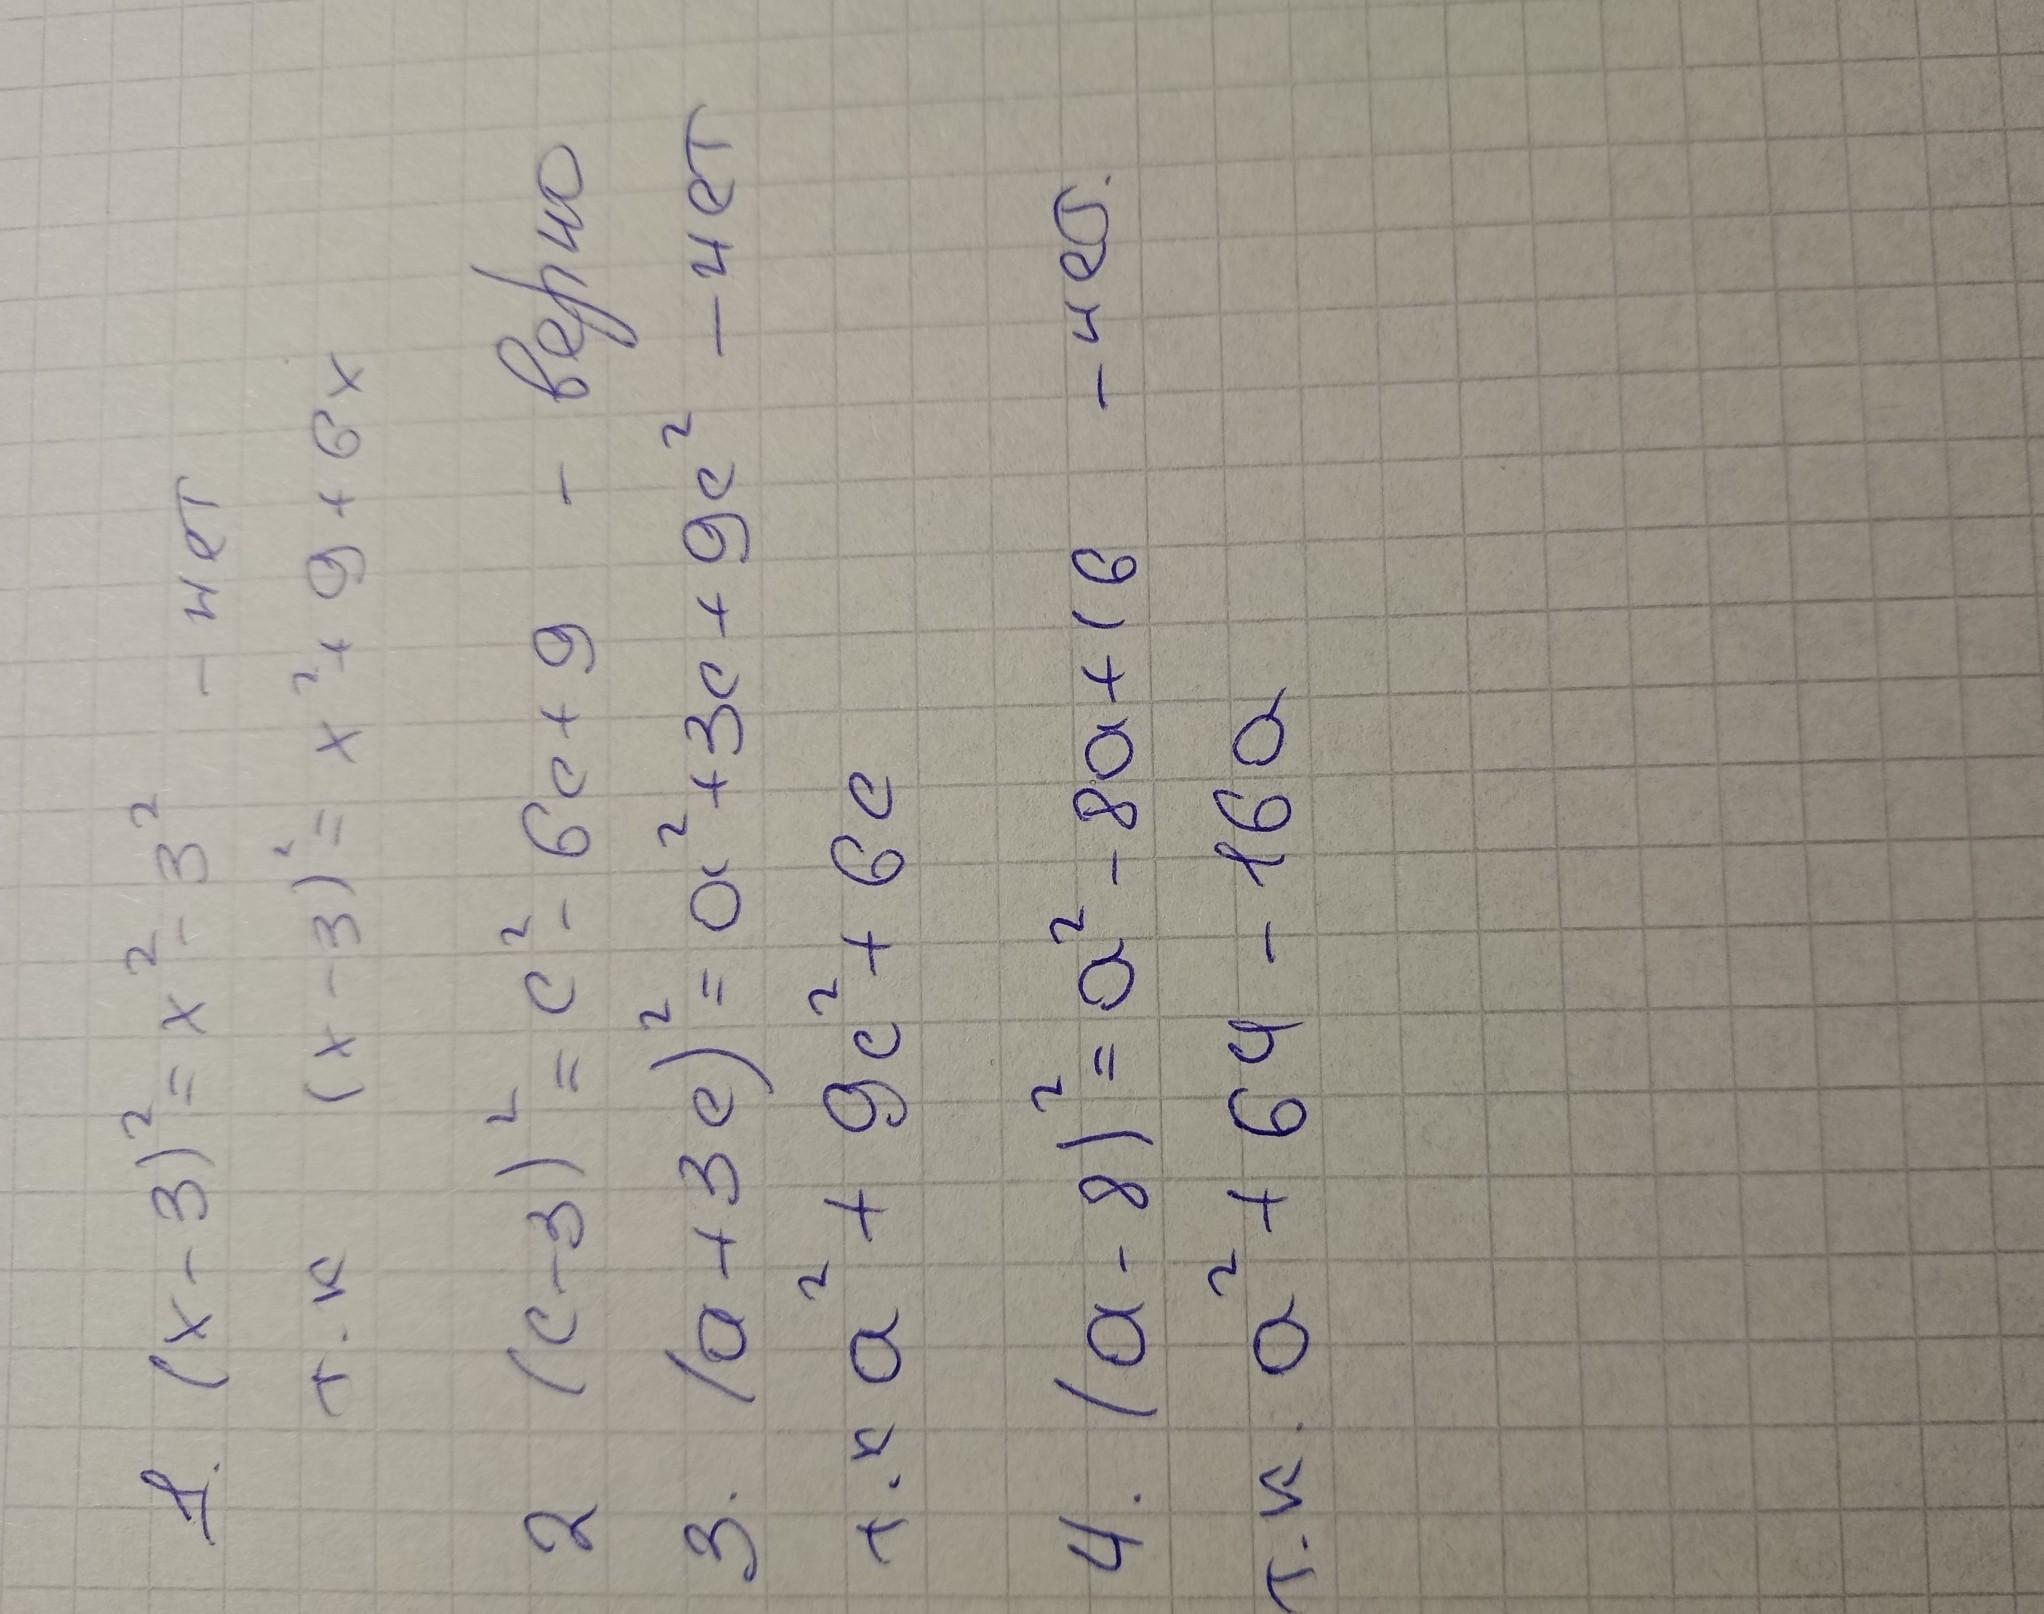 1. (x-3)² = x² - 3² - нет
т.к (x-3)² = x² + 9 + 6x
2 (c-3)² = c² - 6c + 9 - верно
3. (a+3c)² = a² + 3c + 9c² - нет
т.к a² + 9c² + 6c
4. (a-8)² = a² - 8a + 16 - нет.
т.к. a² + 64 - 16a